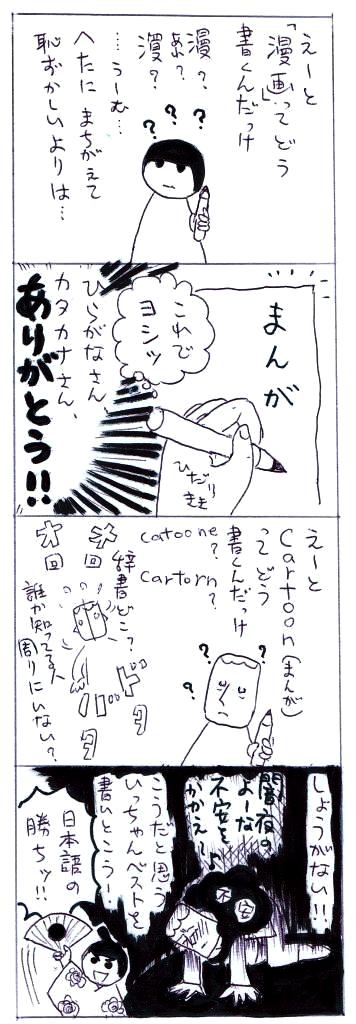 えーと
「漫画」って どう
書くんだっけ
漫?
あれ?
漫?
……うーむ…
へたに まちがえて
恥ずかしいよりは…
まんが
これで
ヨシッ
ひだり
きき
ひらがなさん、
カタカナさん、
ありがとう!!
えーと
Cartoon(まんが)
ってどう
書くんだっけ
catoone?
Cartorn?
辞書どこ?
ドタ
バタ
誰か知ってる人
周りにいない?
しょうがない!!
闇夜の
よーな
不安を
かかえ〜♪
不安
こうだと思う
いっちゃんベストを
書いとこう!
日本語の
勝ちッ!!